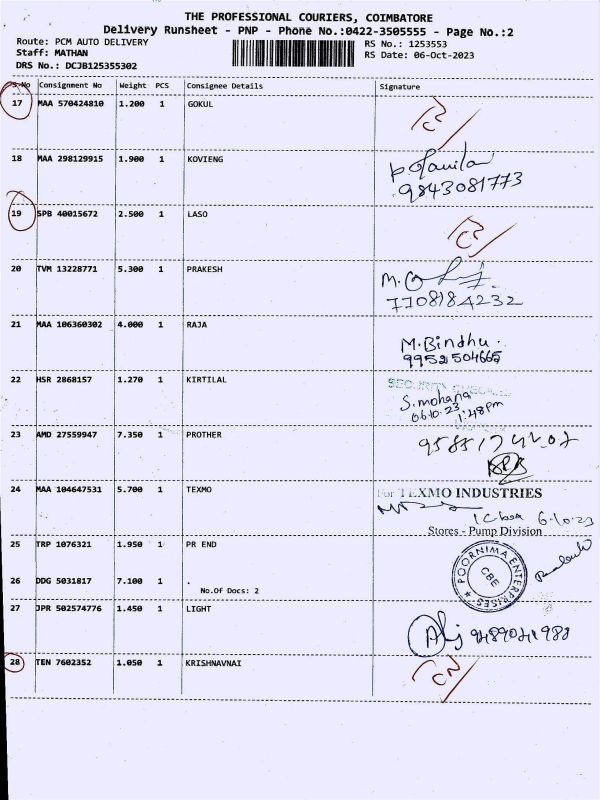 THE PROFESSIONAL COURIERS, COIMBATORE
Delivery Runsheet - PNP - Phone No.:0422-3505555 - Page No.:2
Route: PCM AUTO DELIVERY
Staff: MATHAN
DRS No.: DCJB125355302
RS No.: 1253553
RS Date: 06-Oct-2023
S No Consignment No Weight PCS Consignee Details Signature
17 MAA 570424810 1.200 1 GOKUL
18 MAA 298129915 1.900 1 KOVIENG
9843081773
19 SPB 40015672 2.500 1 LASO
20 TVM 13228771 5.300 1 PRAKESH
7708184232
21 MAA 106360302 4.000 1 RAJA
M.Bindhu.
9952504665
22 HSR 2868157 1.270 1 KIRTILAL
SECURITY CHECKED
S.mohana
06.10.23
1:48pm
23 AMD 27559947 7.350 1 PROTHER
24 MAA 104647531 5.700 1 TEXMO
For TEXMO INDUSTRIES
6.10.23
Stores - Pump Division
25 TRP 1076321 1.950 1 PR END
26 DDG 5031817 7.100 1 .
No.Of Docs: 2
POORNIMA ENTERPRISES
CBE
27 JPR 502574776 1.450 1 LIGHT
28 TEN 7602352 1.050 1 KRISHNAVNAI